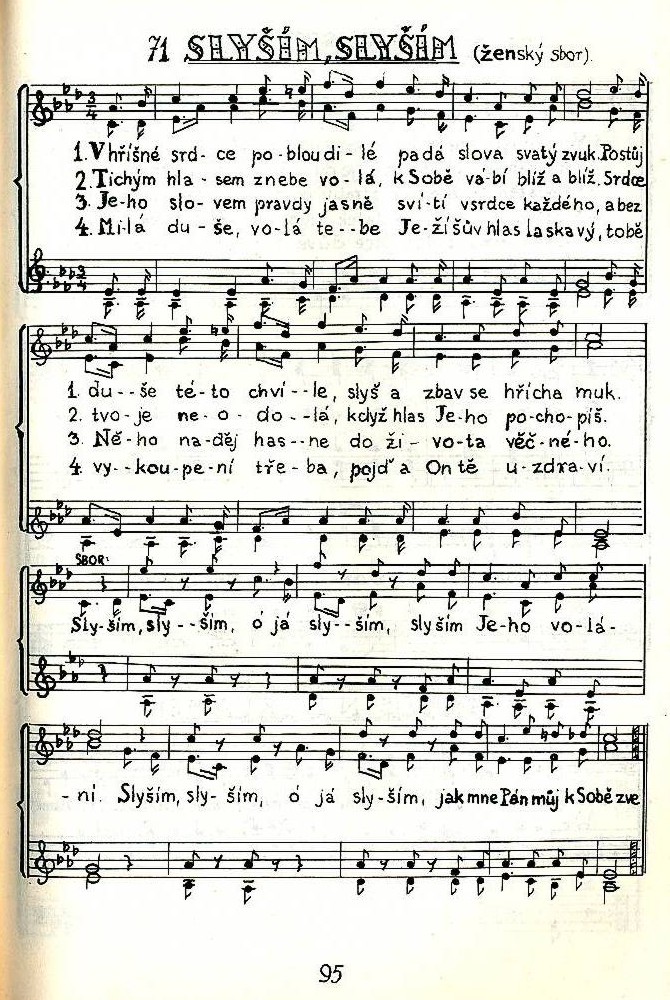 71 SLYŠÍM, SLYŠÍM (ženský sbor).
1. V hříšné srd- ce po-bloudi-lé padá slova svatý zvuk. Postůj
2. Tichým hla- sem z nebe vo-lá, k Sobě vá-bí blíž a blíž. Srdce
3. Je-ho slo-vem pravdy jasně sví-tí v srdce každého, a bez
4. Mi-lá du-še, vo-lá te--be Je-žíšův hlas laskavý, tobě
1. du--še té-to chví--le, slyš a zbav se hřícha muk.
2. tvo-je ne-o-do--lá, když hlas Je-ho po-cho-píš.
3. Ně-ho na-děj has--ne do ži-vo-ta věč-né-ho.
4. vy--kou-pe-ní tře-ba, pojď a On tě u-zdra-ví.
SBOR:
Sly-ším, sly--ším, ó já sly--ším, slyším Je-ho vo-lá-
-ní. Slyším, sly-ším, ó já sly-ším, jak mne Pán můj k Sobě zve
95